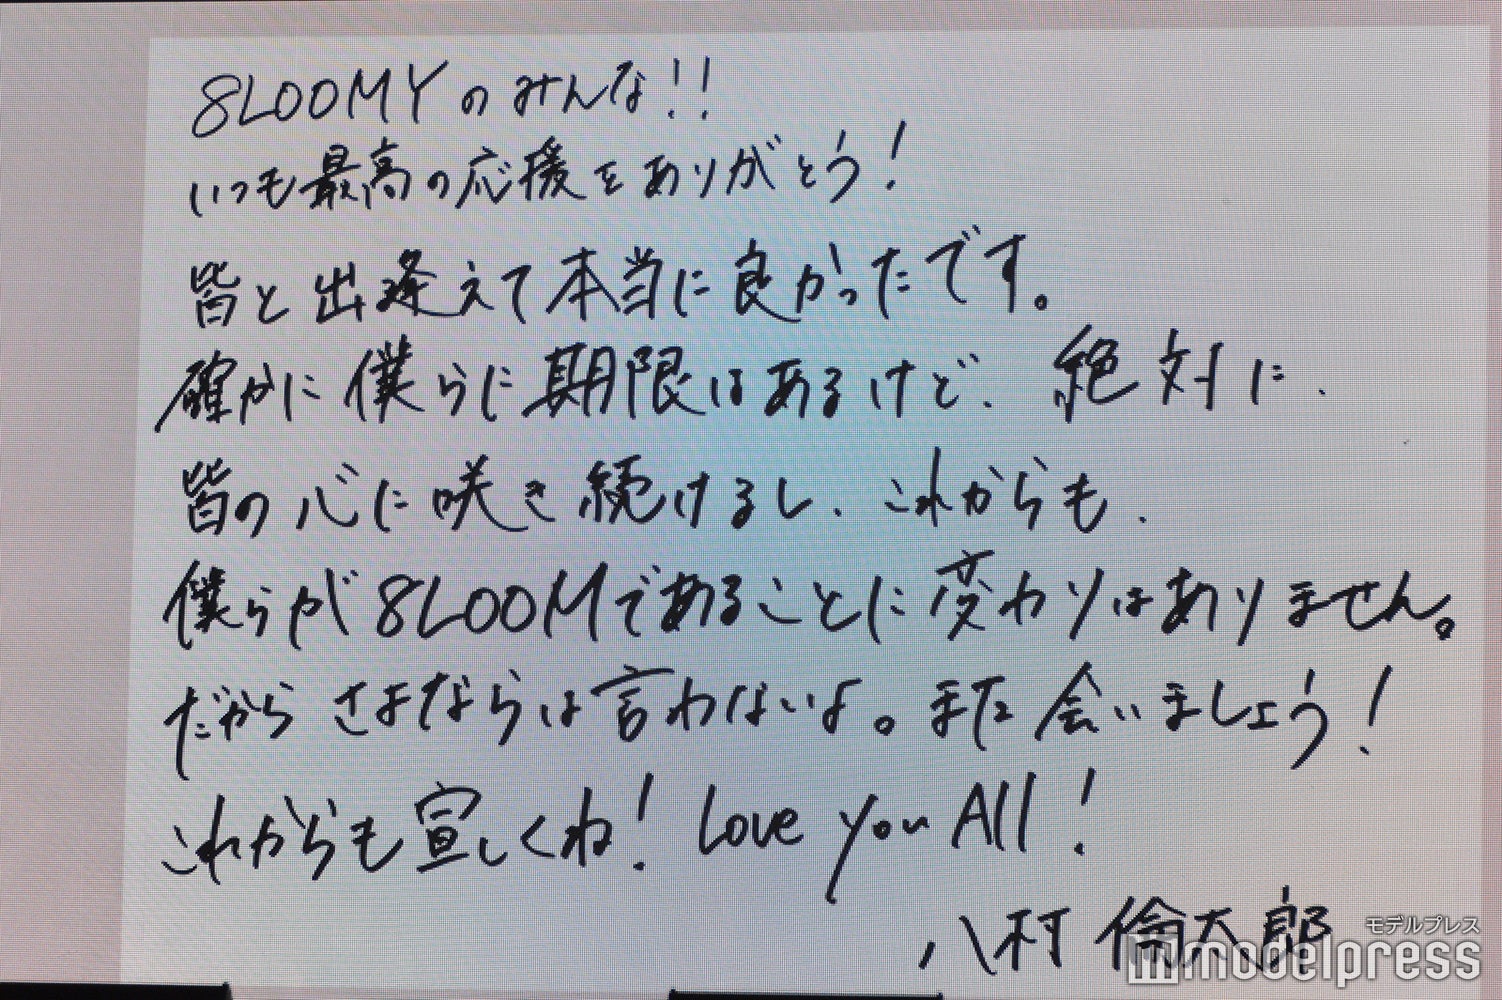 8LOOMYのみんな!!
いつも最高の応援をありがとう!
皆と出逢えて本当に良かったです。
確かに僕らに期限はあるけど、絶対に、
皆の心に咲き続けるし、これからも、
僕らが8LOOMであることに変わりはありません。
だからさよならは言わないよ。また会いましょう!
これからも宜しくね! Love you All!
八村 倫太郎
モデルプレス
modelpress